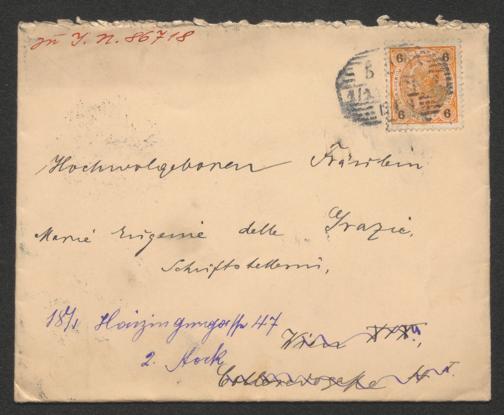 zu I. N. 86718
6 6
6 6
Hochwolgeboren Fräulein
Marie Eugenie delle Grazie,
Schriftstellerin,
18/1 Haizingergasse 47
Wien
2. Stock